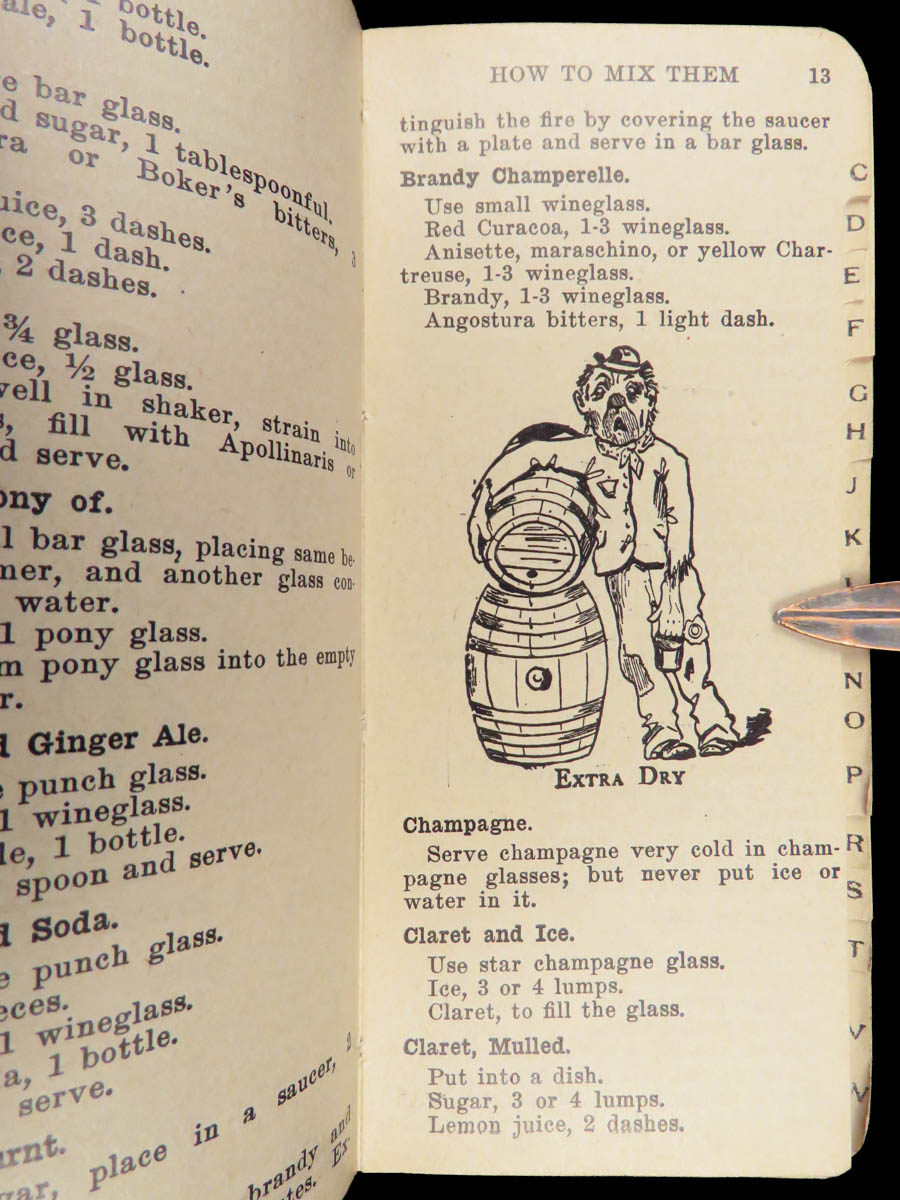 ale, 1 bottle.
bottle.
bar glass.
sugar, 1 tablespoonful.
or Boker's bitters,
juice, 3 dashes.
1 dash.
2 dashes.
¾ glass.
½ glass.
well in shaker, strain into
fill with Apollinaris or
serve.
of.
bar glass, placing same be-
and another glass con-
water.
1 pony glass.
pony glass into the empty
Ginger Ale.
punch glass.
1 wineglass.
1 bottle.
spoon and serve.
Soda.
punch glass.
1 wineglass.
1 bottle.
serve.
place in a saucer, 2
brandy and
Ex-
HOW TO MIX THEM 13
tinguish the fire by covering the saucer
with a plate and serve in a bar glass.
Brandy Champerelle.
Use small wineglass.
Red Curacoa, 1-3 wineglass.
Anisette, maraschino, or yellow Char-
treuse, 1-3 wineglass.
Brandy, 1-3 wineglass.
Angostura bitters, 1 light dash.
EXTRA DRY
Champagne.
Serve champagne very cold in cham-
pagne glasses; but never put ice or
water in it.
Claret and Ice.
Use star champagne glass.
Ice, 3 or 4 lumps.
Claret, to fill the glass.
Claret, Mulled.
Put into a dish.
Sugar, 3 or 4 lumps.
Lemon juice, 2 dashes.
C
D
E
F
G
H
J
K
N
O
P
R
S
T
V
W